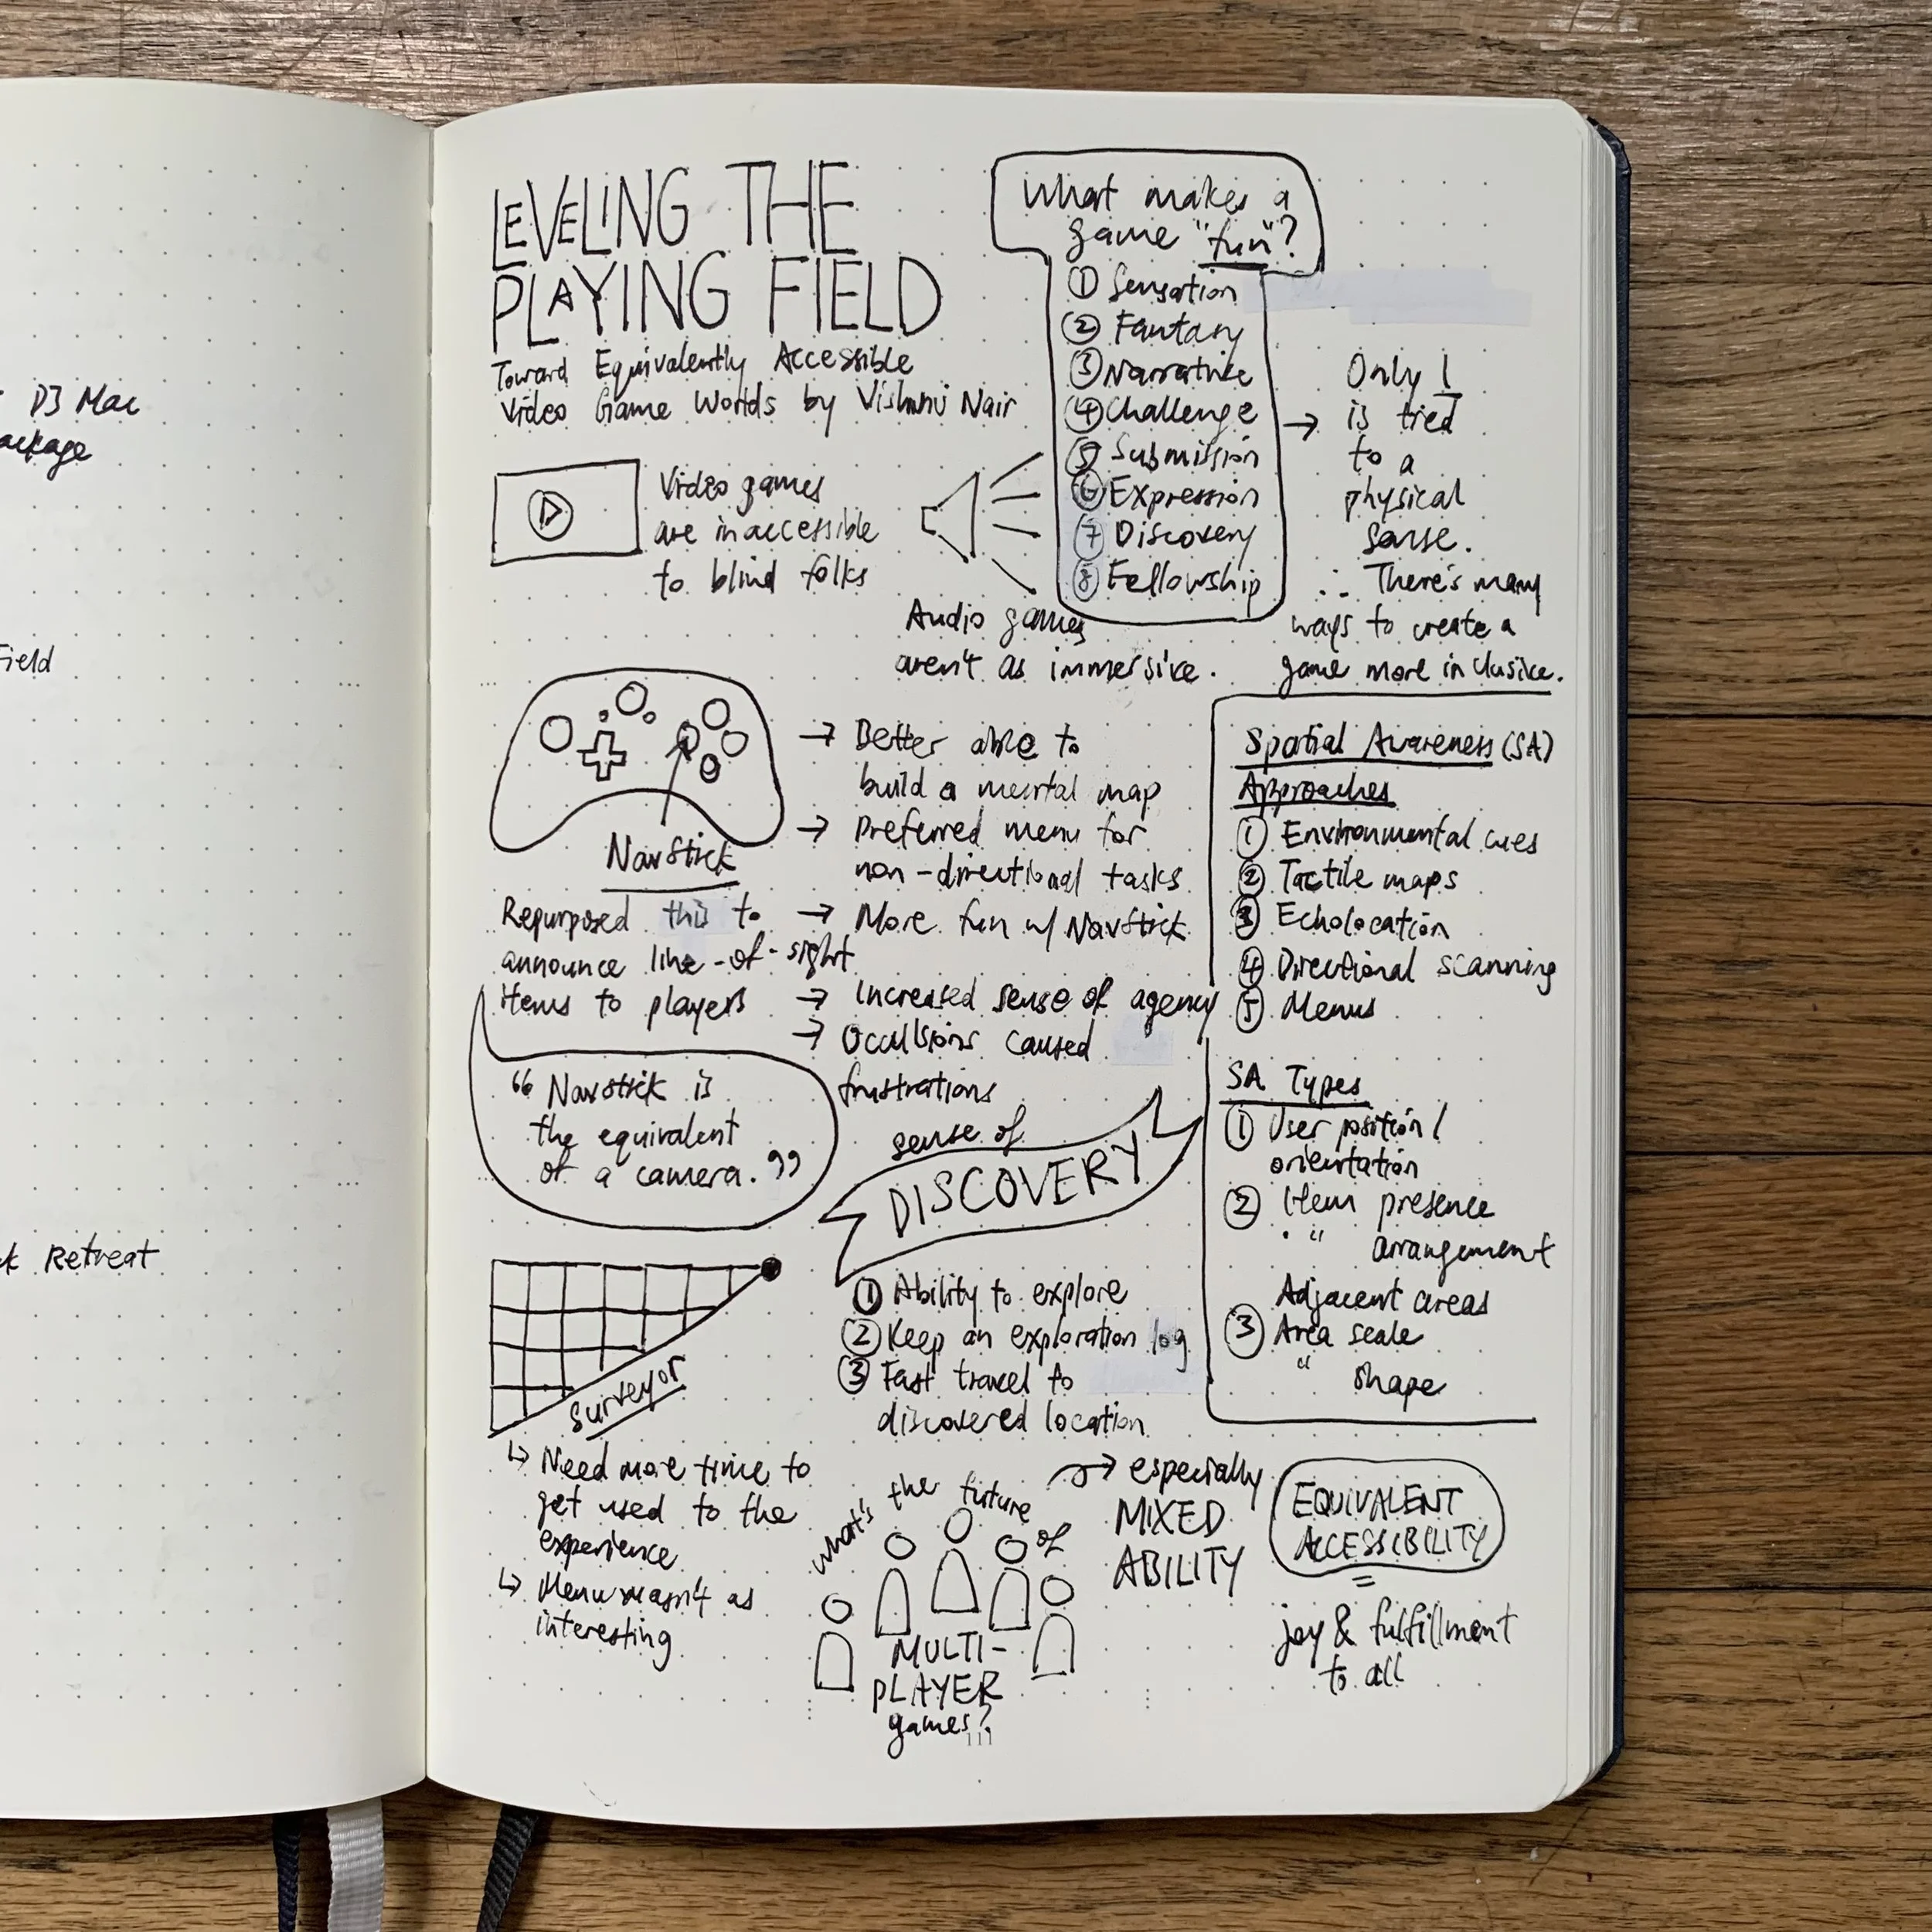 D3 Mac
Field
Retreat
LEVELING THE
PLAYING FIELD
Toward Equivalently Accessible
Video Game Worlds by Vishnu Nair
What makes a
game "fun"?
① Sensation
② Fantasy
③ Narrative
④ Challenge
⑤ Submission
⑥ Expression
⑦ Discovery
⑧ Fellowship
→ Only 1
is tied
to a
physical
sense.
∴ There's many
ways to create a
game more inclusive.
Video games
are inaccessible
to blind folks
Audio games
aren't as immersive.
NavStick
Repurposed this to
announce line-of-sight
items to players
→ Better able to
build a mental map
→ Preferred menu for
non-directional tasks
→ More fun w/ NavStick
→ Increased sense of agency
→ Occulsions caused
frustrations
"Navstick is
the equivalent
of a camera."
Spatial Awareness (SA)
Approaches
① Environmental cues
② Tactile maps
③ Echolocation
④ Directional scanning
⑤ Menus
SA Types
① User position/
orientation
② Item presence
" arrangement
Adjacent areas
③ Area scale
" shape
sense of
DISCOVERY
① Ability to explore
② Keep an exploration log
③ Fast travel to
discovered location
Surveyor
↳ Need more time to
get used to the
experience
↳ Menu wasn't as
interesting
what's the future of
MULTI-
PLAYER
games?
→ especially
MIXED
ABILITY
EQUIVALENT
ACCESSIBILITY
=
joy & fulfillment
to all
111